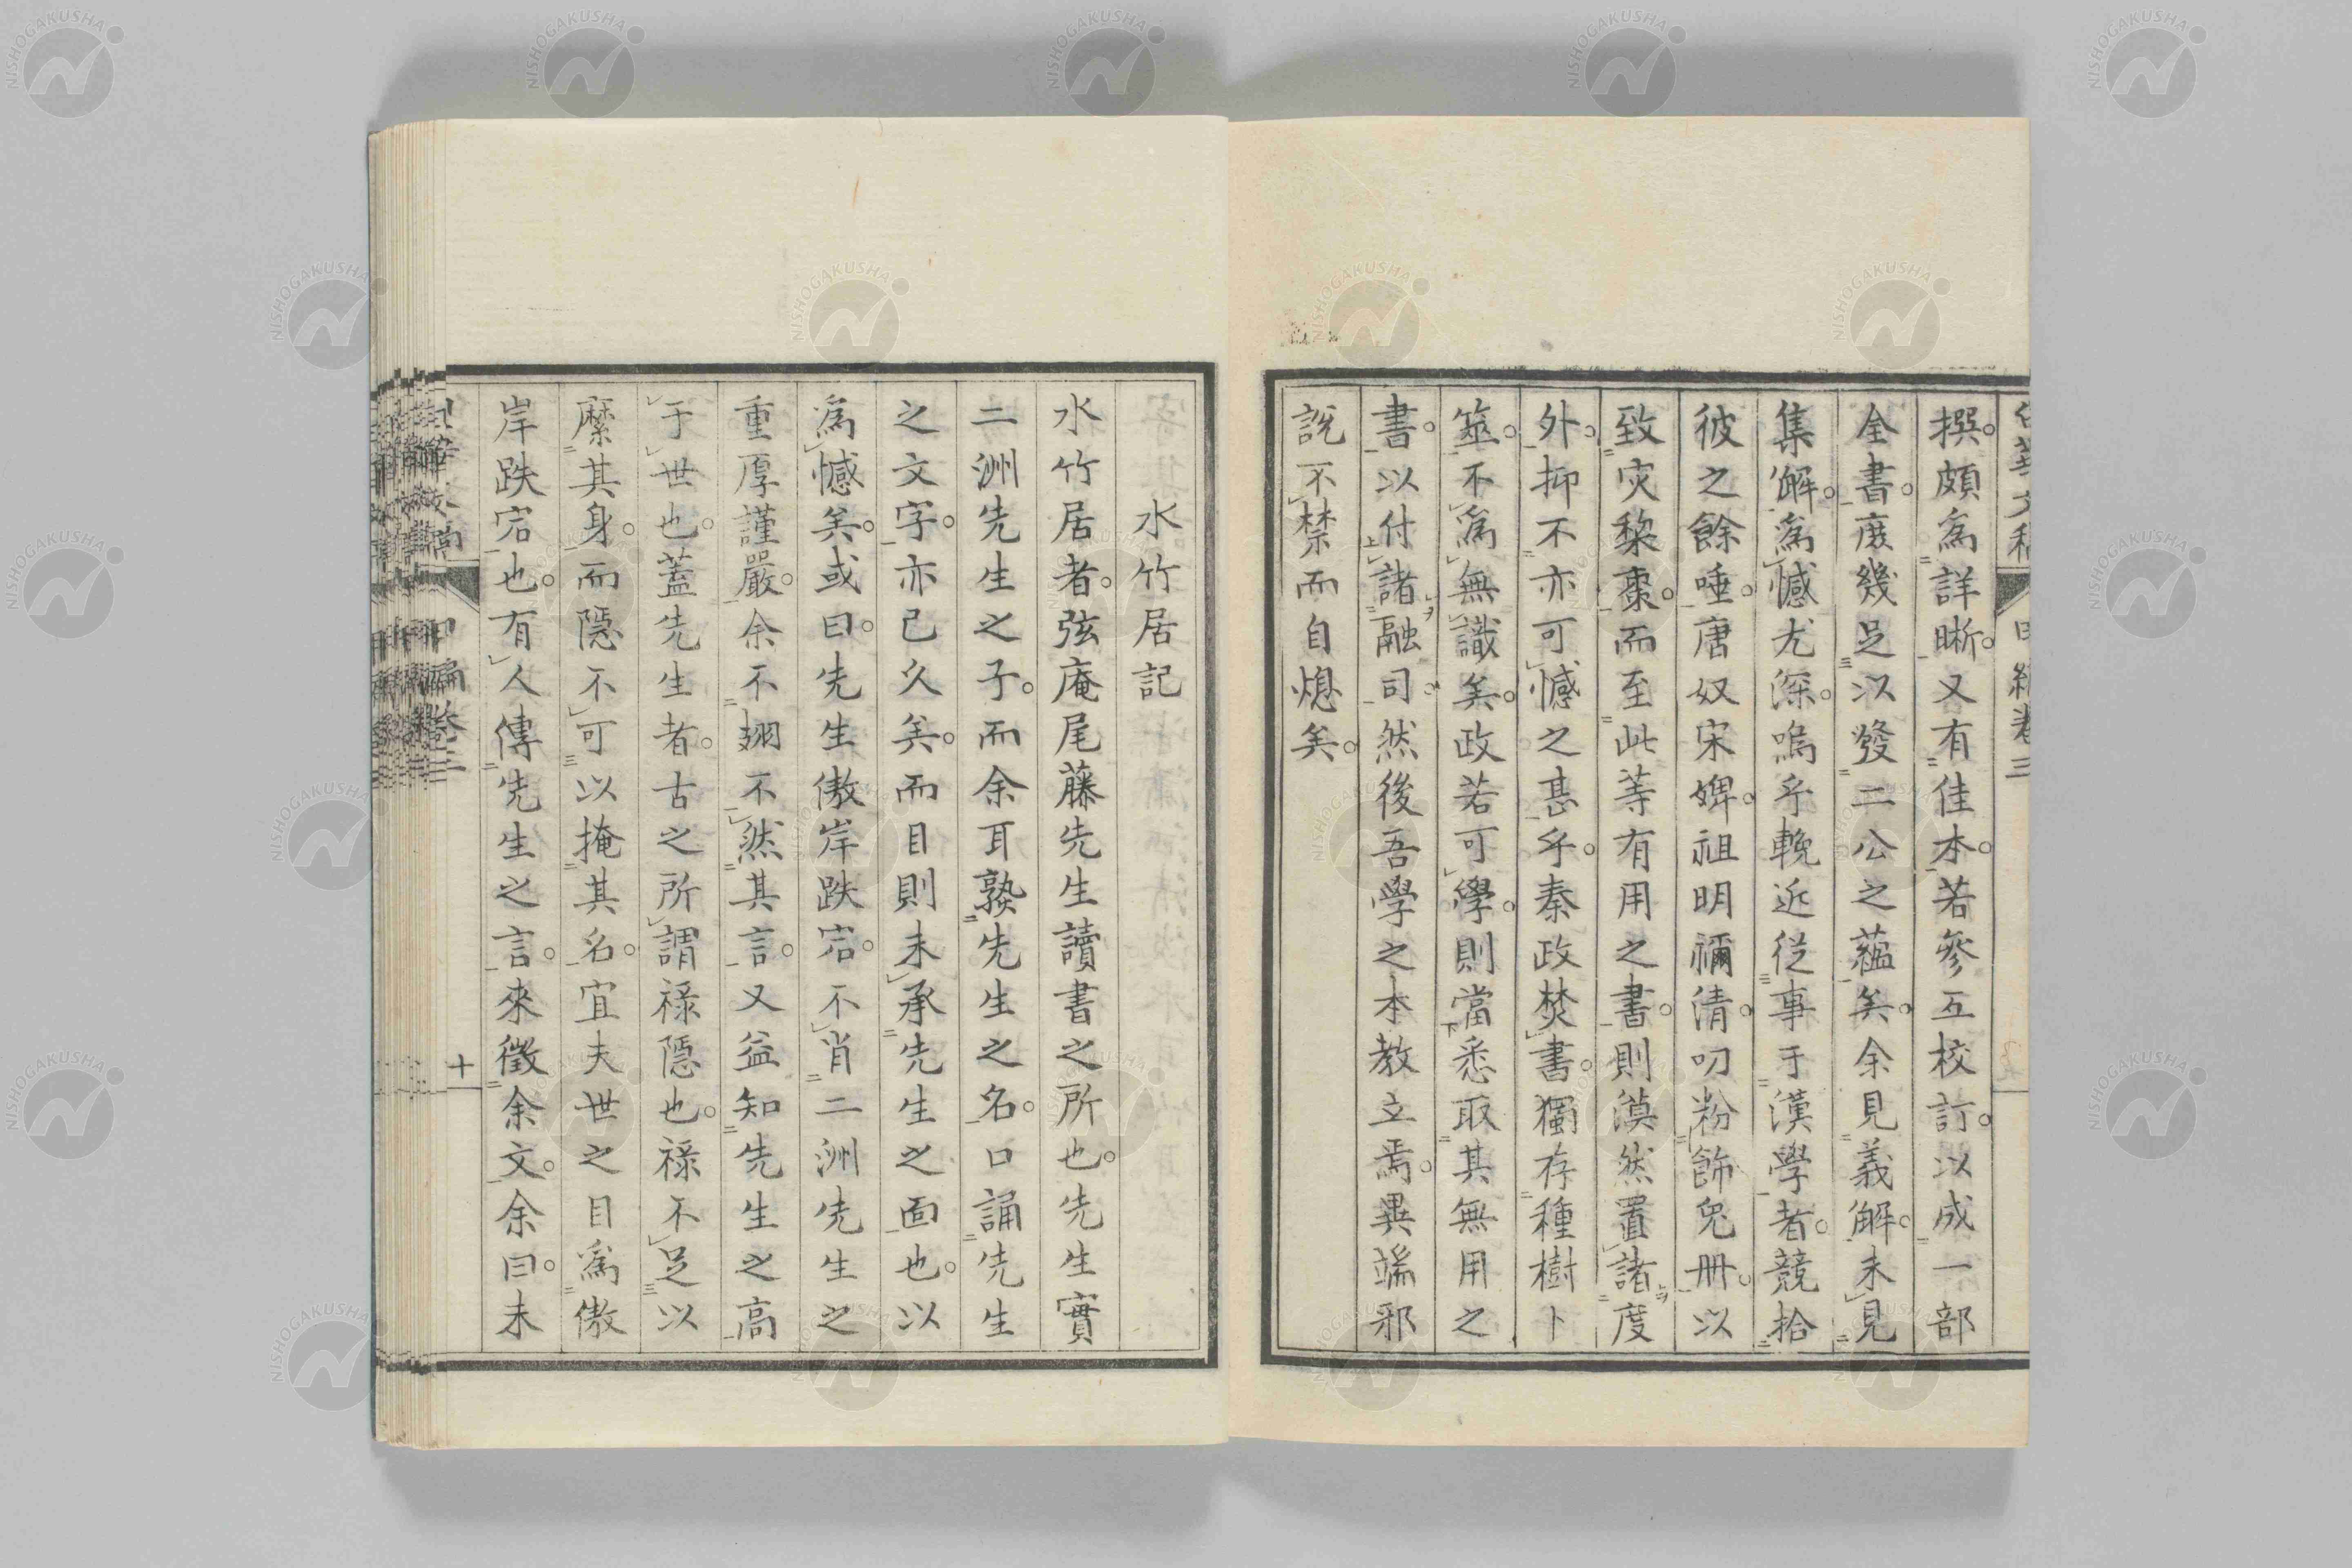 撰。頗爲詳晰。又有佳本。若參互校訂。以成一部
全書。庶幾足以發二公之蘊矣。余見義解。未見
集解。爲憾尤深。嗚乎輓近從事于漢學者。競拾
彼之餘唾。唐奴宋婢。祖明禰清。叨粉飾兔册。以
致灾棃棗。而至此等有用之書。則漠然置諸度
外。抑不亦可憾之甚乎。秦政焚書。獨存種樹卜
筮。不爲無識矣。政若可學。則當悉取其無用之
書。以付諸融司。然後吾學之本教立焉。異端邪
說不禁而自熄矣。
水竹居記
水竹居者。弦庵尾藤先生讀書之所也。先生實
二洲先生之子。而余耳熟先生之名。口誦先生
之文字。亦已久矣。而目則未承先生之面也。以
爲憾矣。或曰。先生傲岸跌宕。不肖二洲先生之
重厚謹嚴。余不翅不然其言。又益知先生之高
于世也。蓋先生者。古之所謂祿隱也。祿不足以
縻其身。而隱不可以掩其名。宜夫世之目爲傲
岸跌宕也。有人傳先生之言。來徵余文。余曰。未
甲編卷三
十